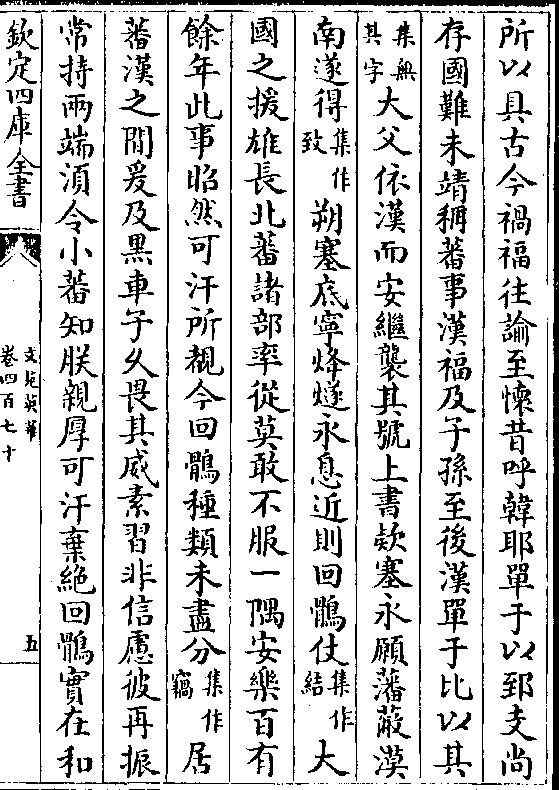 所以具古今禍福徃諭至懷昔呼韓耶單于以郅支尚
存國難未靖稱蕃事漢福及子孫至後漢單于比以其
集無其字大父依漢而安繼襲其號上書欵塞永願藩蔽漠
南遂得集作致朔塞底寧烽燧永息近則回鶻仗集作結大
國之援雄長北蕃諸部率從莫敢不服一隅安樂百有
餘年此事昭然可汗所覩今回鶻種類未盡分集作竊居
蕃漢之間爰及黒車子乆畏其威素習非信慮彼再振
常持兩端湏令小蕃知朕親厚可汗棄絶回鶻實在和
欽定四庫全書
文苑英華
卷四百七十
五